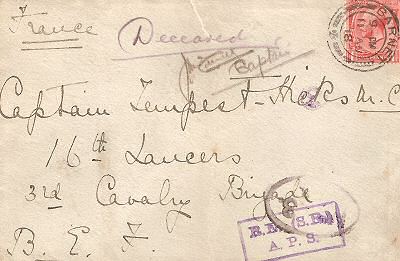 France
Deceased
Captain
BARNET
Captain Tempest-Hicks M.C
16th Lancers
3rd Cavalry Brigade
B. E. F.
A.P.S.